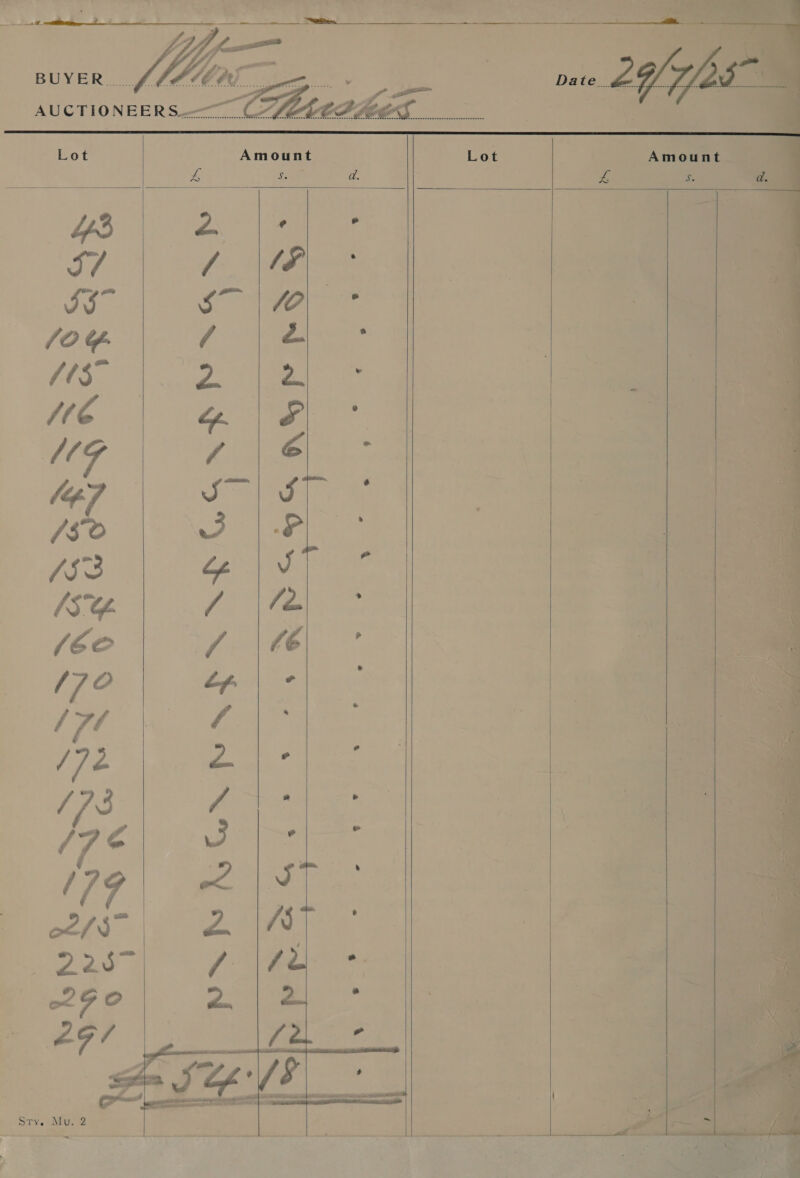 BUYER
Date 29/7/25
AUCTIONEERS Christies
Lot Amount Lot Amount
£ s. d. £ s. d.
43 2 . .
51 1 18 .
55 5 10 .
104 1 2 .
115 2 2 .
116 4 8 .
119 1 6 .
147 5 5 .
150 3 8 .
153 4 5 .
154 1 12 .
160 1 16 .
170 4 . .
171 1 . .
172 2 . .
173 1 . .
176 3 . .
179 2 5 .
215 2 15 .
225 1 12 .
290 2 2 .
291 12 .
£54.18 .
Sty. Mu. 2